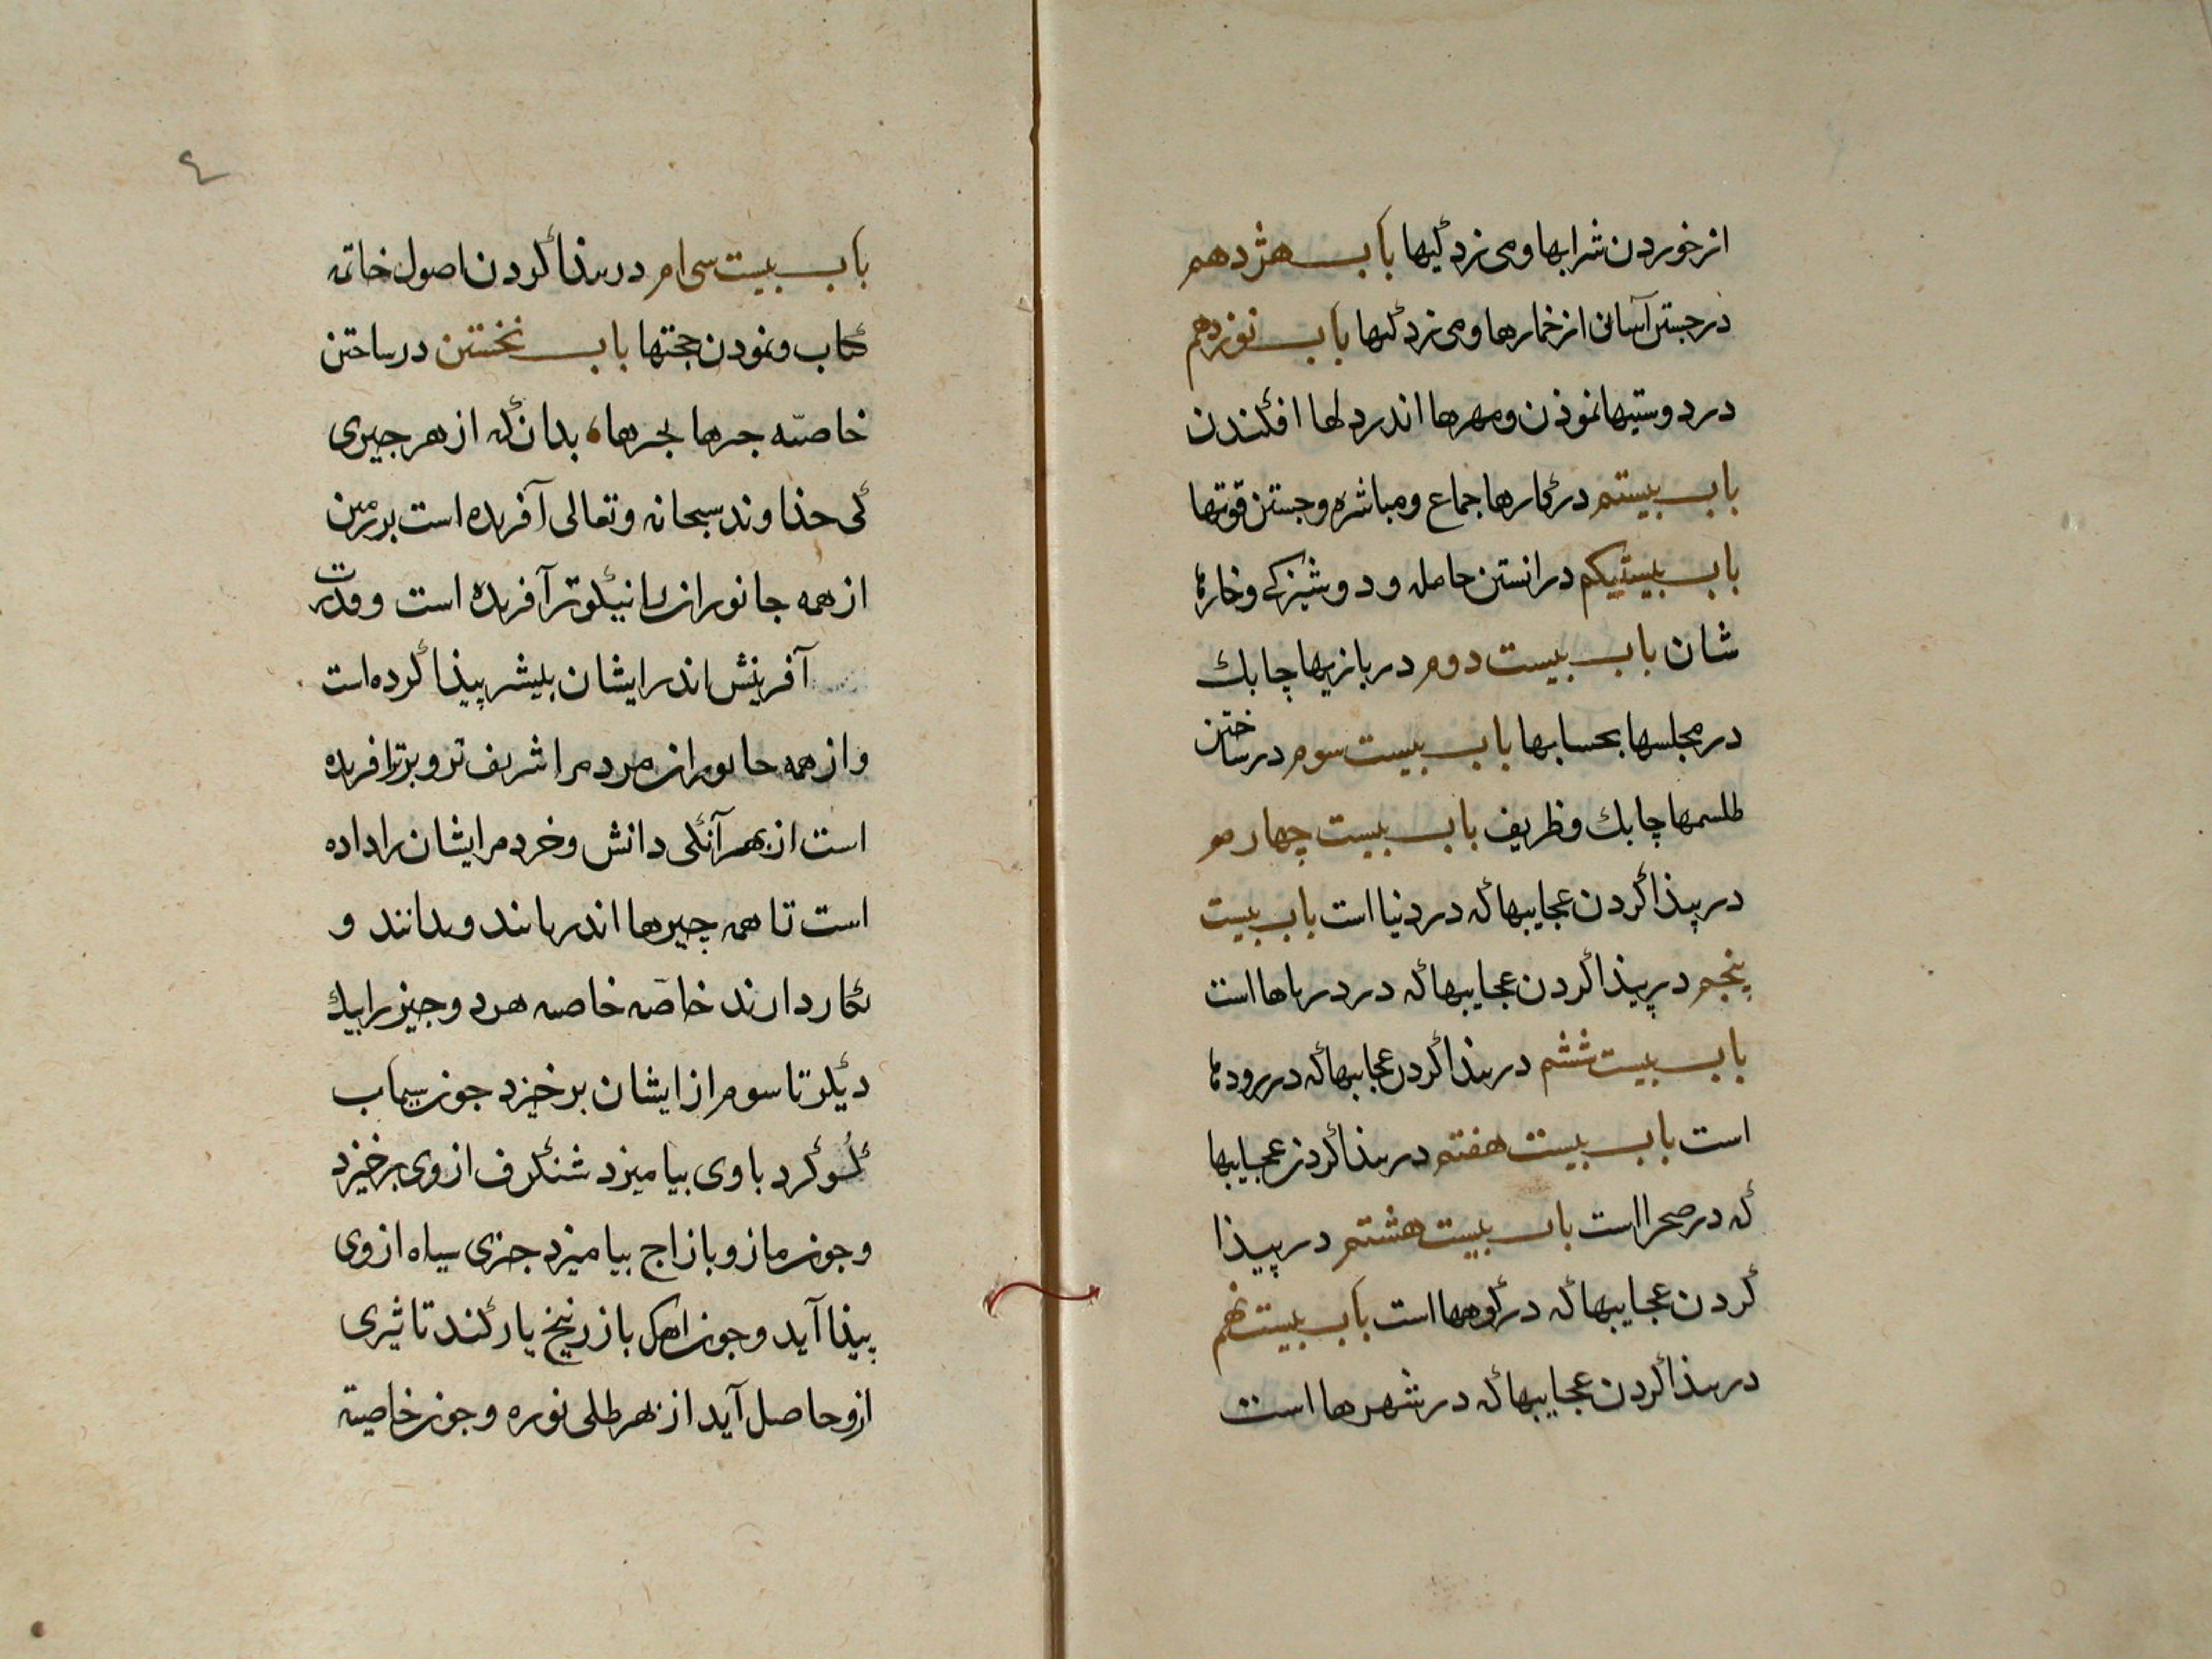 از خوردن شرابها و می زدگیها باب هژدهم
در جستن آسانی از خمارها و می زدگیها باب نوزدهم
در دوستیها نموذن و مهرها اندر دلها افگندن
باب بیستم در کارها جماع و مباشره و جستن قوتها
باب بیستیکم در انستن حامله و دوشیزگی و خارۀ
شان باب بیست دوم در بازیها چابك
در مجلسها بحسابها باب بیست سوم در ساختن
طلسمها چابك و ظریف باب بیست چهارم
در پیذا کردن عجایبها که در دنیا است باب بیست
پنجم در پیذا کردن عجایبها که در دریاها است
باب بیست ششم در پیذا کردن عجایبها که در رودها
است باب بیست هفتم در پیذا کردن عجایبها
که در صحرا است باب بیست هشتم در پیذا
کردن عجایبها که در کوهها است باب بیست نهم
در پیذا کردن عجایبها که در شهرها است
٤
باب بیست سی ام در پیذا کردن اصول خاتمه
کتاب و نمودن حجتها باب نخستن در ساختن
خاصّه چیزها بچیزها، بدان که از هر چیزی
کی خذاوند سبحانه و تعالی آفریده است بر زمین
از همه جانوران را نیکوتر آفریده است و قدرت
آفرینش اندر ایشان بیشتر پیذا کرده است
و از همه جانوران مردم را شریف تر و برتر افریده
است از بهر آنکی دانش و خرد مر ایشان را داده
است تا همه چیزها اندر یابند و بدانند و
بکار دارند خاصّه خاصه هر دو چیز را بیك
دیگر تا سوم از ایشان بر خیزد جون سیماب
گوگرد با وی بیامیزد شنگرف از وی بر خیزد
و جون مازو با زاج بیامیزد چیزی سیاه از وی
پیذا آید و جون اهك با زرنیخ یار کند تاثیری
ازو حاصل آید از بهر طلی نوره و جون خاصیة